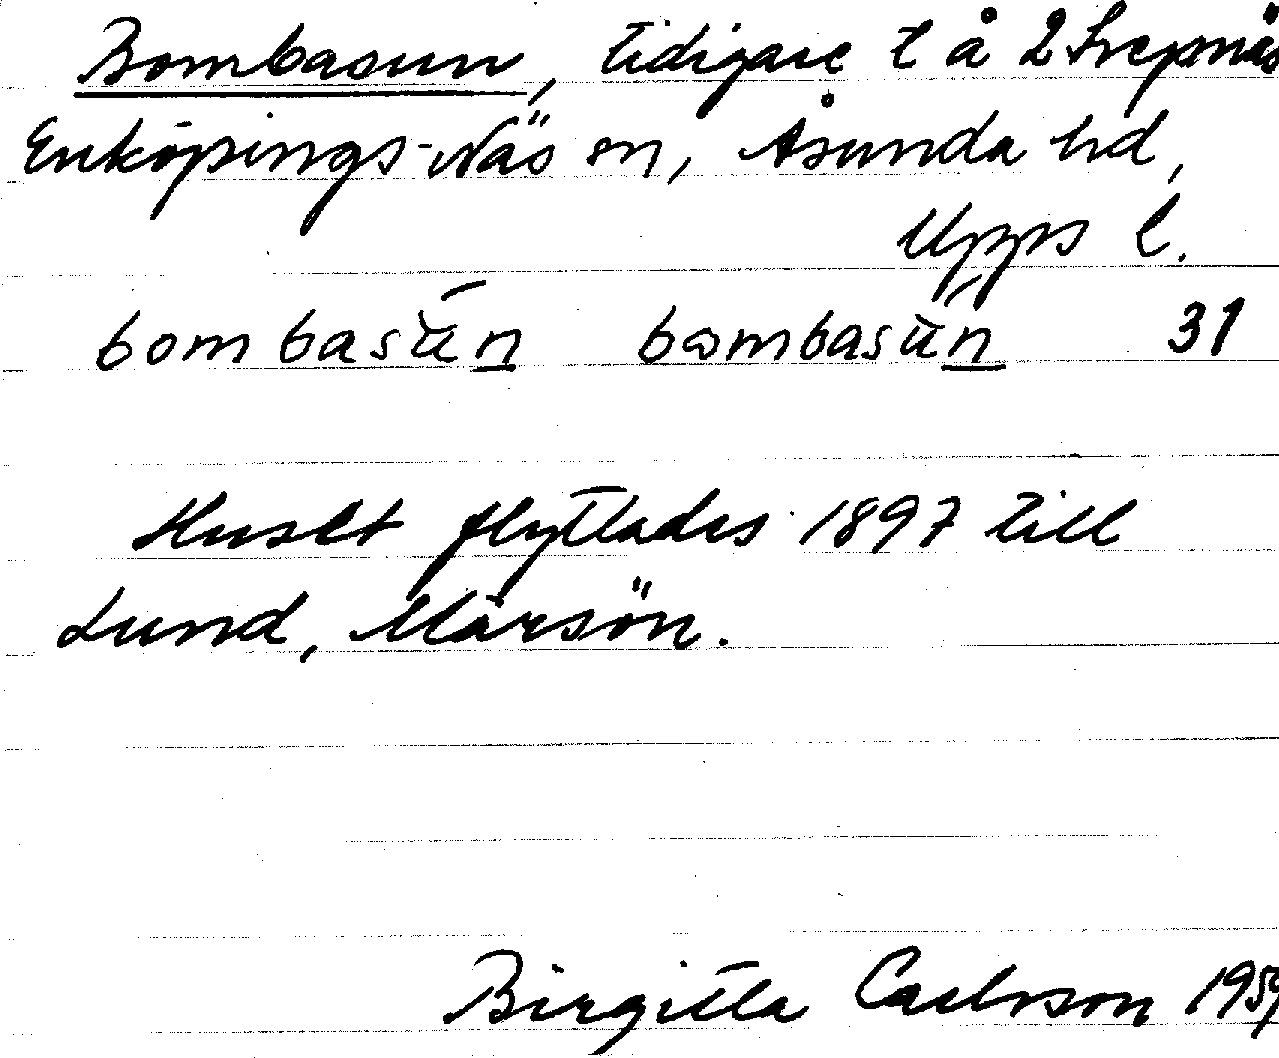 Bombasun, tidigare t å 2 Svepnäs
Enköpings-Näs sn, Åsunda hd,
Upps l.
bombasun bombasun 31
Huset flyttades 1897 till
Lund, Märsön.
Birgitta Carlsson 1959